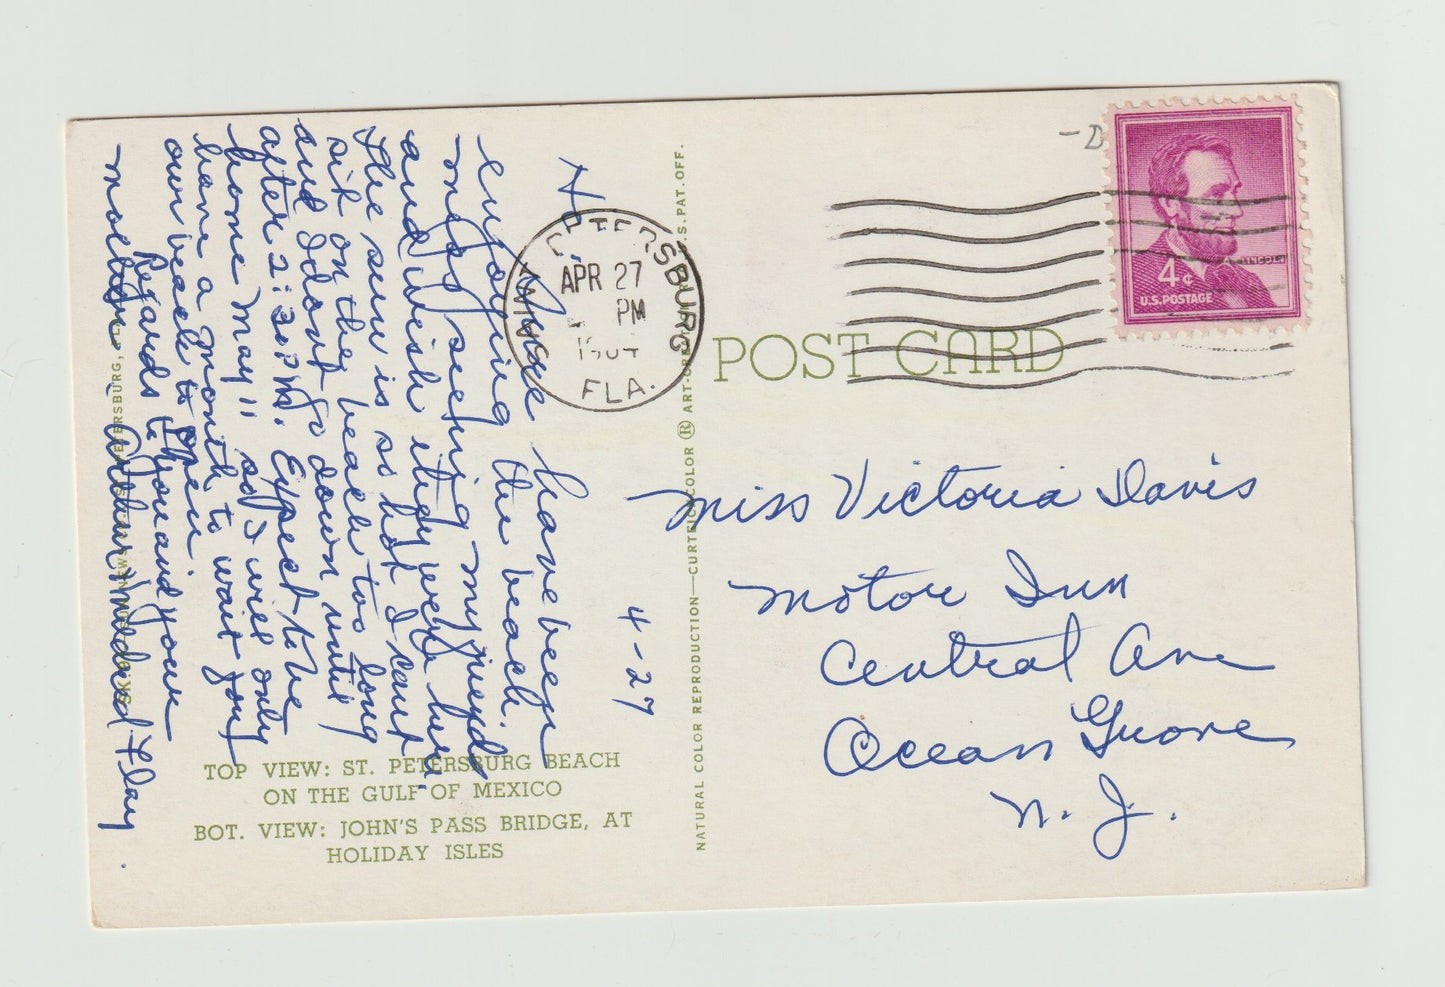 4-27
Hi,
have been
enjoying the beach.
and seeing my friends
and wish they were here.
the sun is so hot I cant
sit on the beach too long
and I dont go down until
after 2:30 P.M. Expect to be
home May 11 so I will only
have a month to wait for
our beach to open
Regards to you and your
mother. Arthur Mildred + Clay.
Miss Victoria Davis
Motor Inn
Central Ave
Ocean Grove
N. J.
POST CARD
ST. PETERSBURG
APR 27
PM
FLA.
LINCOLN
4¢
U.S. POSTAGE
TOP VIEW: ST. PETERSBURG BEACH
ON THE GULF OF MEXICO
BOT. VIEW: JOHN'S PASS BRIDGE, AT
HOLIDAY ISLES
NATURAL COLOR REPRODUCTION—CURTEICHCOLOR ® ART-CREATION U.S. PAT. OFF.